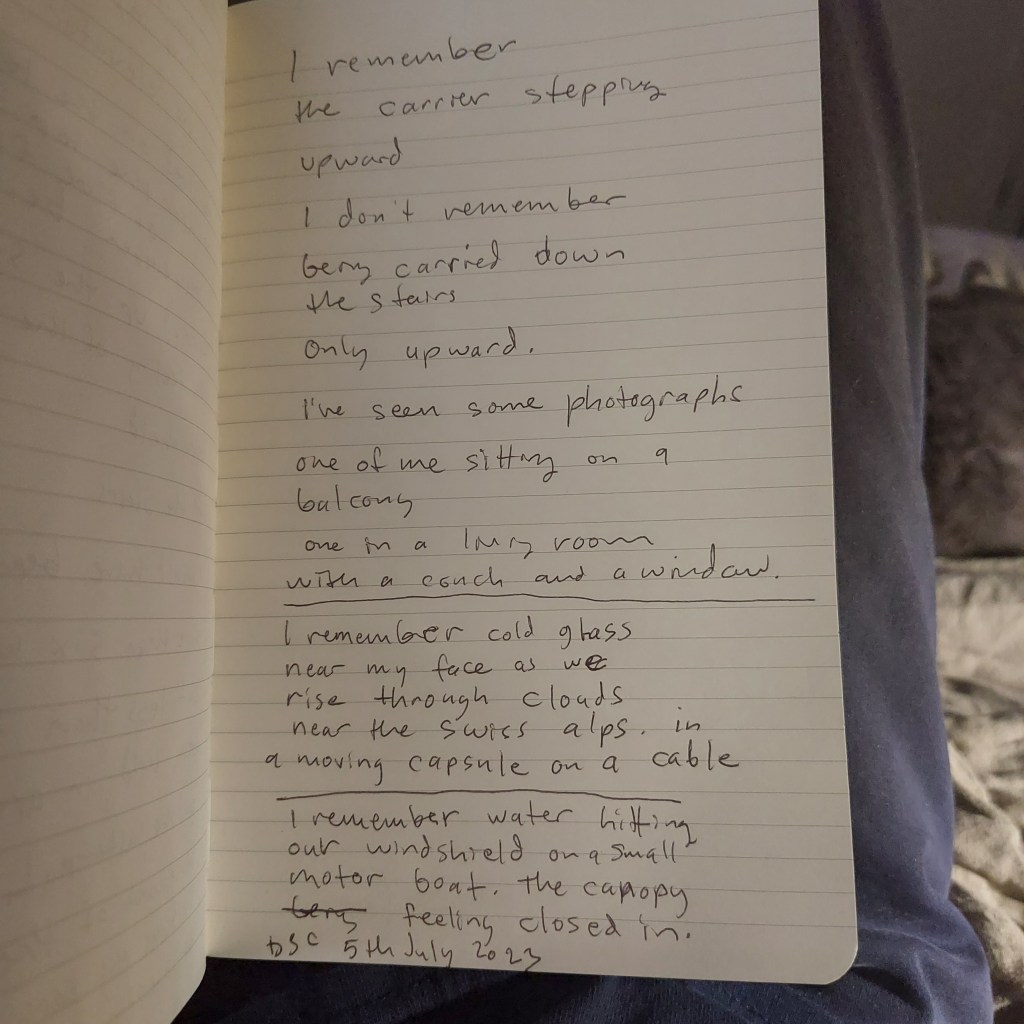 I remember
the carrier stepping
upward
I don't remember
being carried down
the stairs
only upward.
I've seen some photographs
one of me sitting on a
balcony
one in a living room
with a couch and a window.
I remember cold glass
near my face as we
rise through clouds
near the swiss alps. in
a moving capsule on a cable
I remember water hitting
our windshield on a small
motor boat. the canopy
being feeling closed in.
DSC 5th July 2023